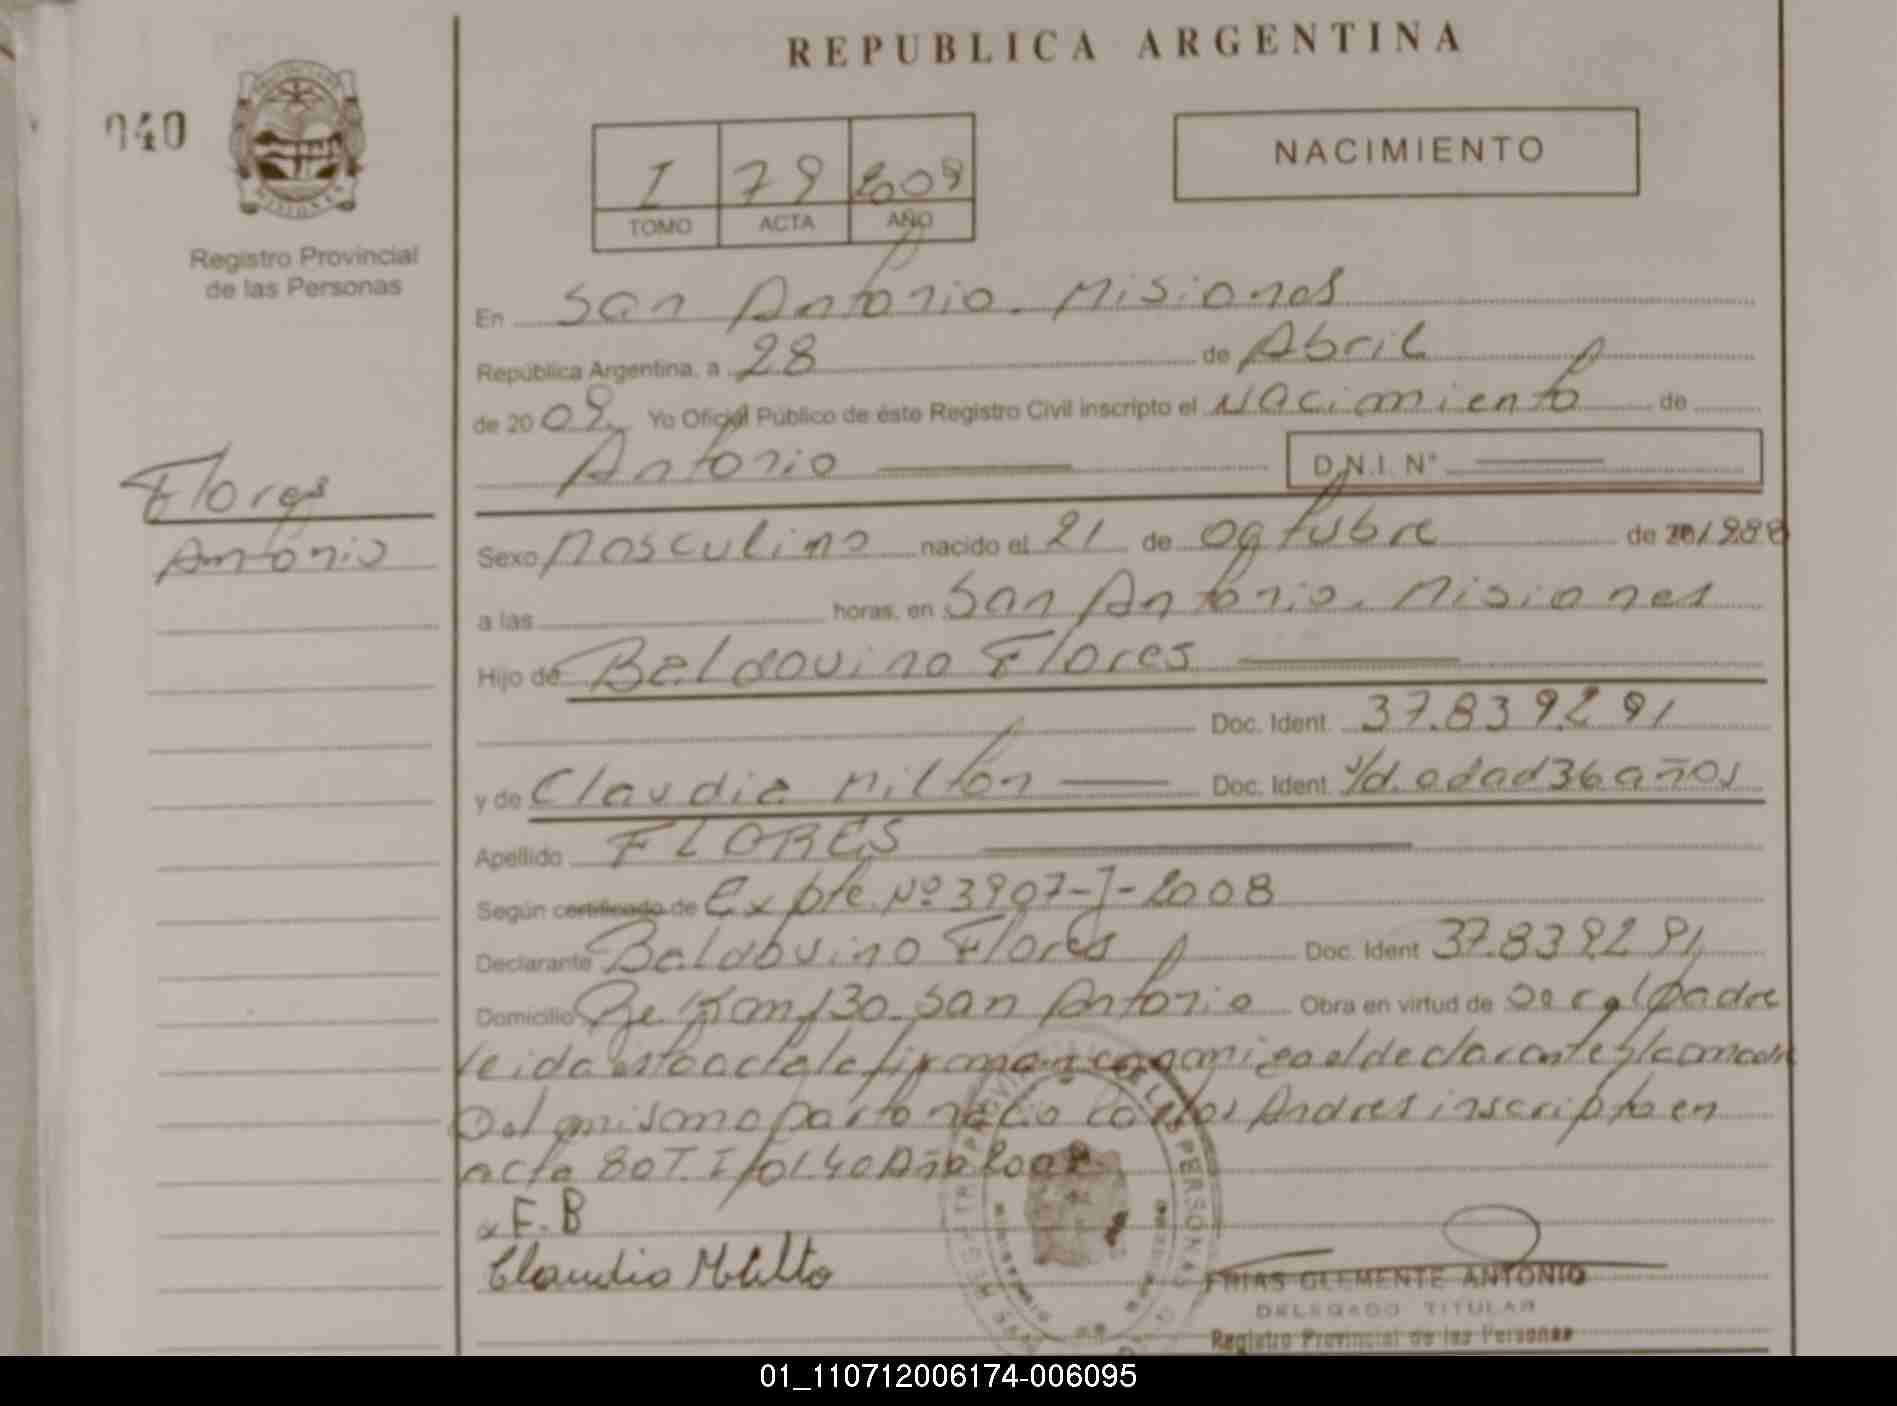 REPUBLICA ARGENTINA
040
I 79 2009
TOMO ACTA AÑO
NACIMIENTO
Registro Provincial
de las Personas
En San Antonio. Misiones
República Argentina, a 28 de Abril
de 2009 Yo Oficial Público de éste Registro Civil inscripto el Nacimiento de
Antonio D.N.I. N°
Flores
Antonio
Sexo Masculino nacido el 21 de Ogtubre de 20
a las horas, en San Antonio. Misiones
Hijo de Baldovino Flores
Doc. Ident. 37.839.291
y de Claudia Milton Doc. Ident. s/d. edad 36 años
Apellido FLORES
Según certificado de Expte. Nº 3907-J-2008
Declarante Baldovino Flores Doc. Ident 37.839.291
Domicilio Belgrano 130. San Antonio Obra en virtud de padre
leida esta acta la firman conmigo el declarante y la madre
Del mismo parto nacio Carlos Andres inscripto en
acta 80 T. I fol. 40 Año
x F. B
Claudia
FRIAS CLEMENTE ANTONIO
DELEGADO TITULAR
Registro Provincial de las Personas
01_110712006174-006095